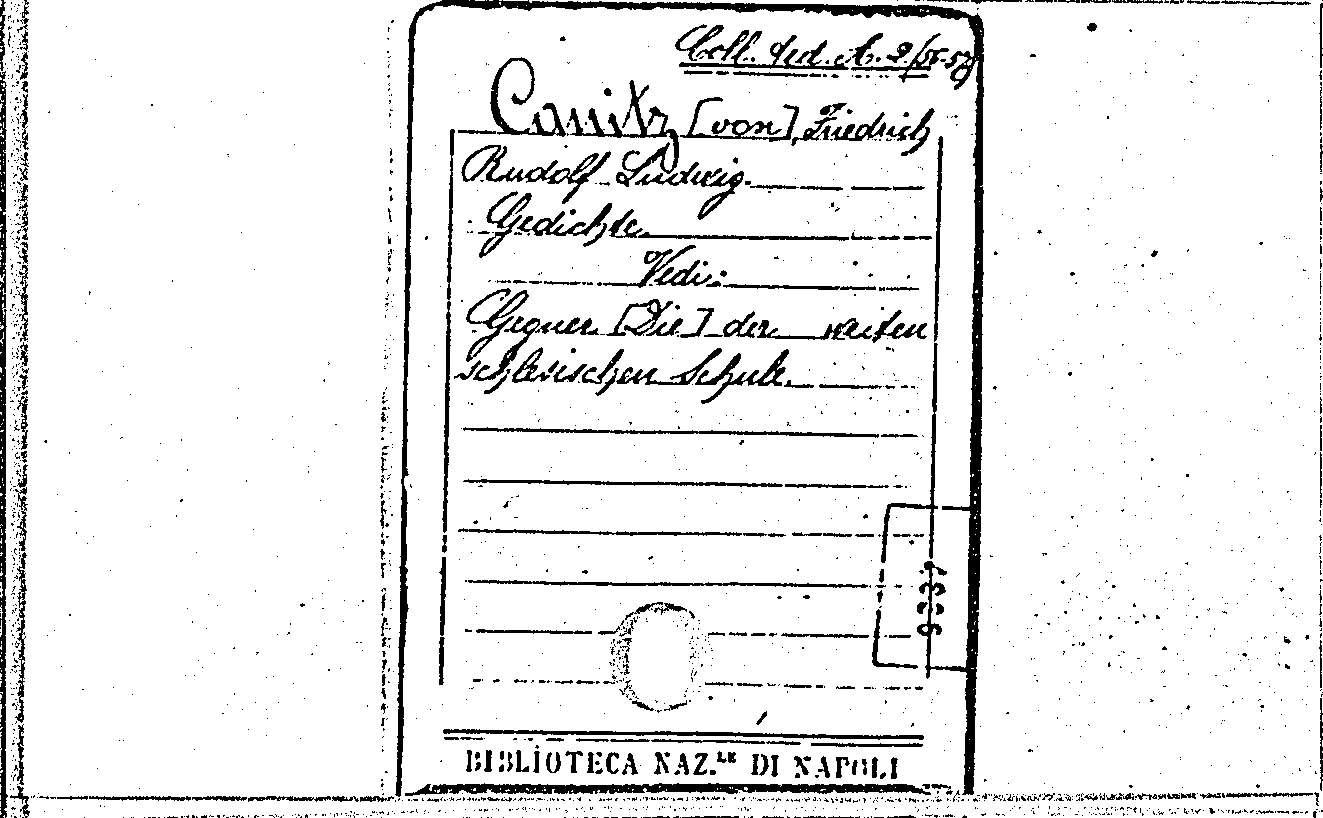 Coll. ted. A. 2/(56-57)
Canitz [von], Friedrich
Rudolf Ludwig.
Gedichte.
Vedi:
Gegner [Die] der weiten
schlesischen Schule.
9337
BIBLIOTECA NAZ.LE DI NAPOLI